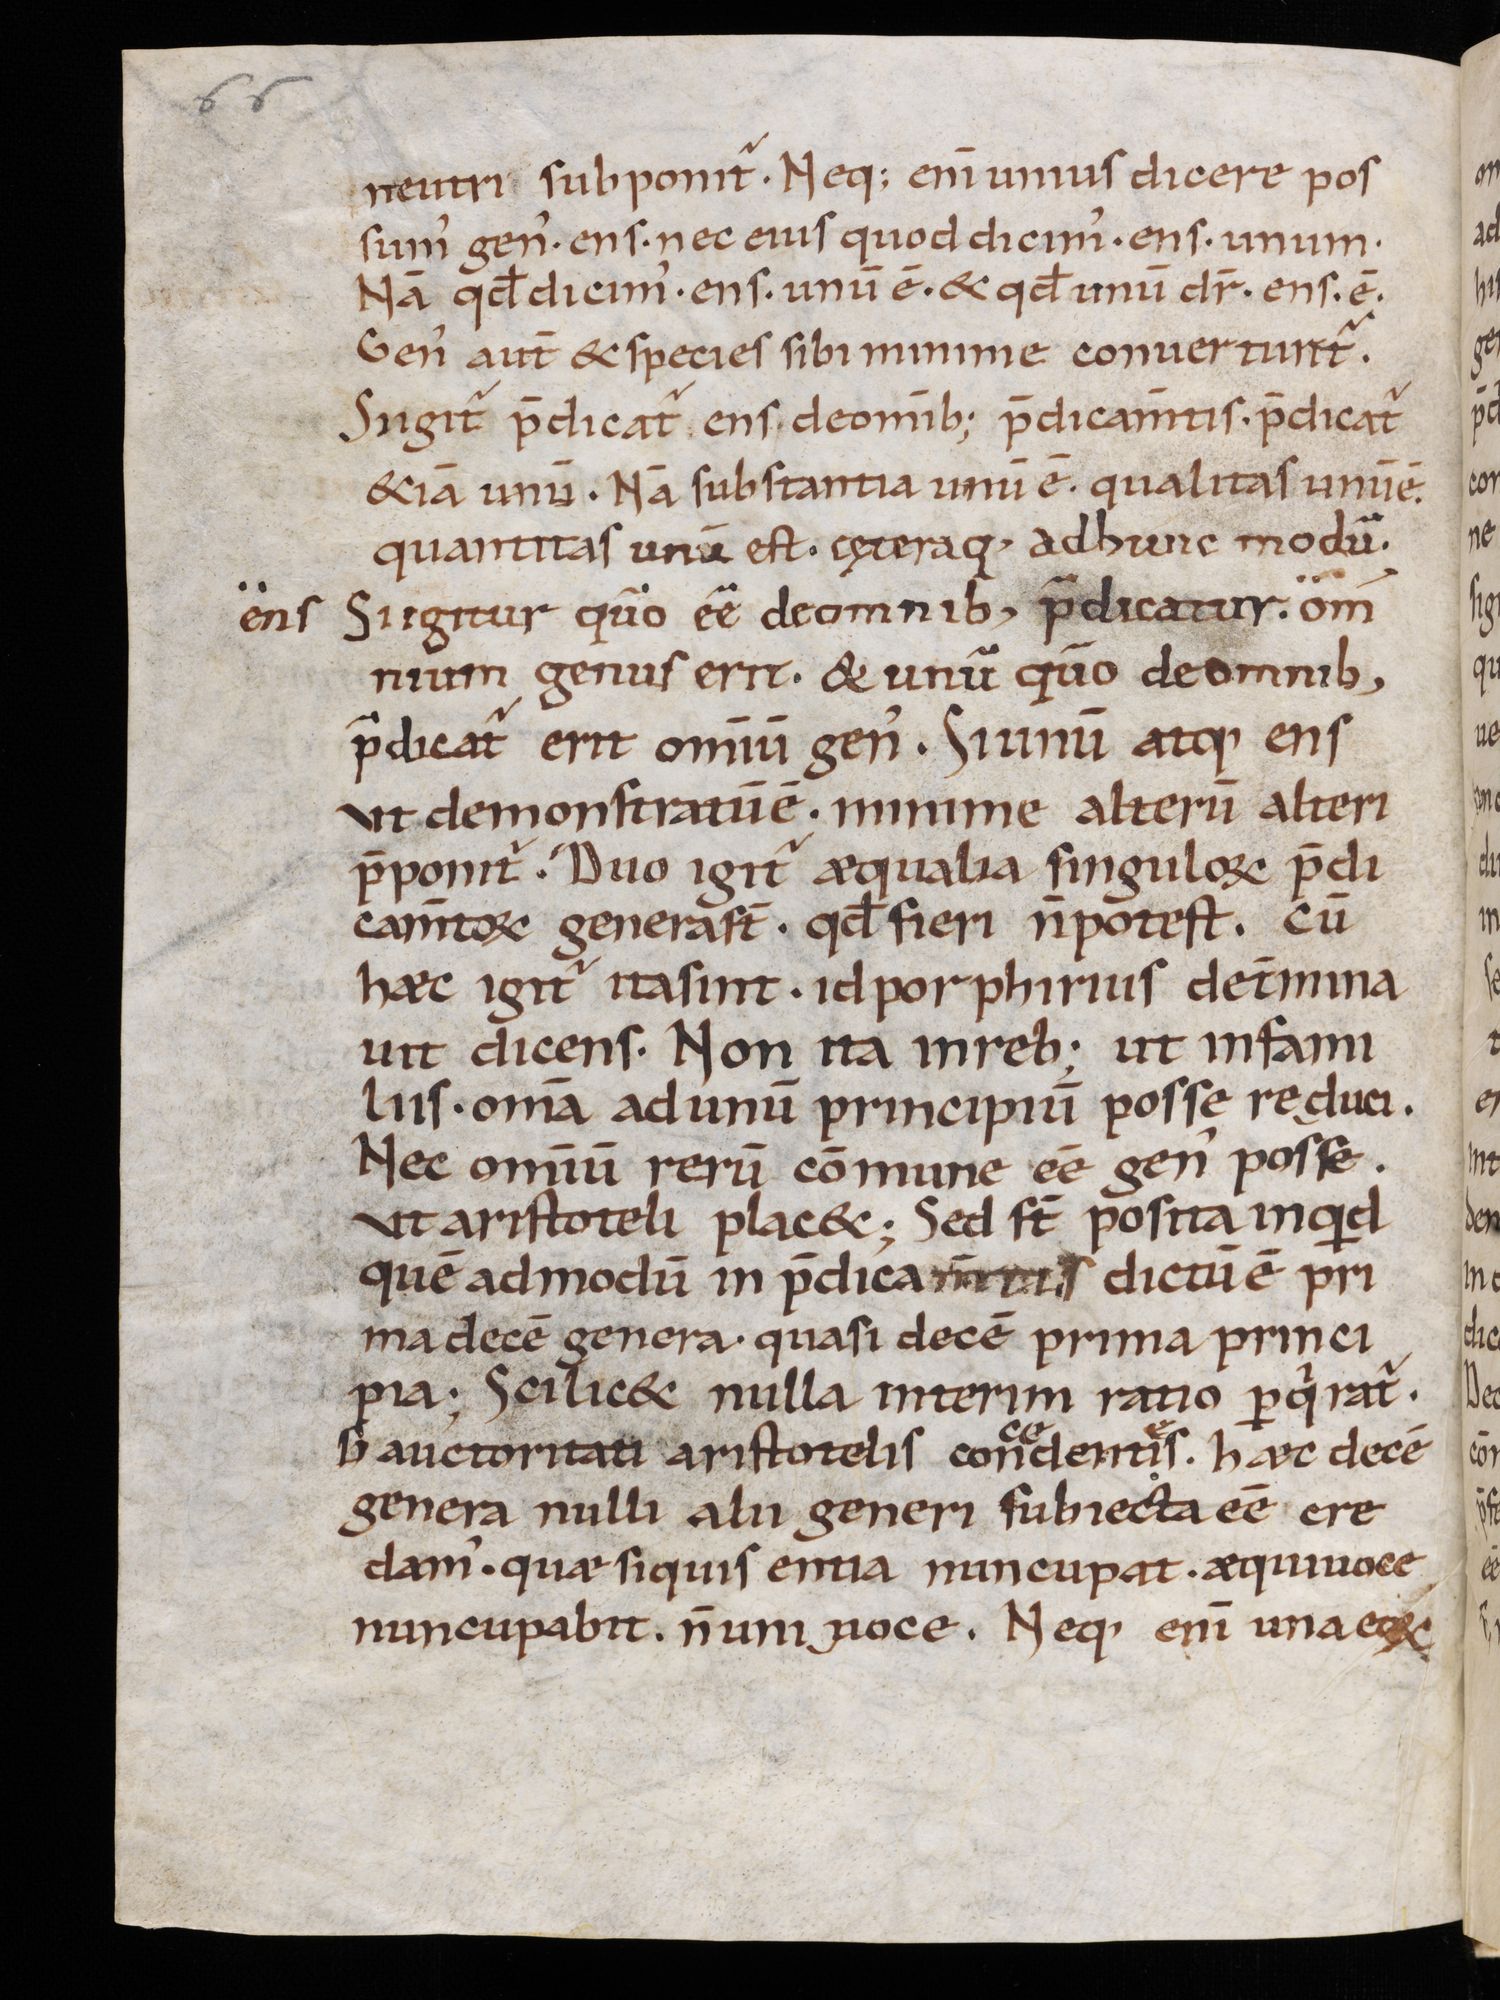 66
neutri subponit᷑. Neq; enī unius dicere pos
sum᾽ gen᾽. ens. nec eius quod dicim᾽. ens. unum.
Nā qđ dicim᾽. ens. unū ē. & qđ unū dr̄. ens. ē.
Gen᾽ aut̄ & species sibi minime conuertunt᷑.
Si igit᷑ p̄dicat᷑ ens de omīb; p̄dicam̄tis. p̄dicat᷑
&iā unū. Nā substantia unū ē. qualitas unū ē.
quantitas unū est. cęteraq, ad hunc modū.
ens Si igitur qūo eē de omnib, p̄dicatur. om̄
nium genus erit. & unū qūo de omnib,
p̄dicat᷑ erit omīū gen᾽. Si unū atq, ens
ut demonstratū ē. minime alterū alteri
p̄ponit᷑. Duo igit᷑ æqualia singuloꝝ p̄di
cam̄toꝝ genera st̄. qđ fieri n̄ potest. Cū
hæc igit᷑ ita sint. id porphirius det̄mina
uit dicens. Non ita in reb; ut in fami
liis. om̄a ad unū principiū posse reduci.
Nec omīū rerū cōmune eē gen᾽ posse.
ut aristoteli plac&; Sed st̄ posita inqͥd
quē ad modū in p̄dicam̄tis dictū ē pri
ma decē genera. quasi decē prima princi
pia; Scilic& nulla interim ratio ꝑqͥrat᷑.
sƀ auctoritati aristotelis concedentes. hæc decē
genera nulli alii generi subiecta eē cre
dam᾽. quæ si quis entia nuncupat. æquiuoce
nuncupabit. n̄ uniuoce. Neq, enī una eoꝝ